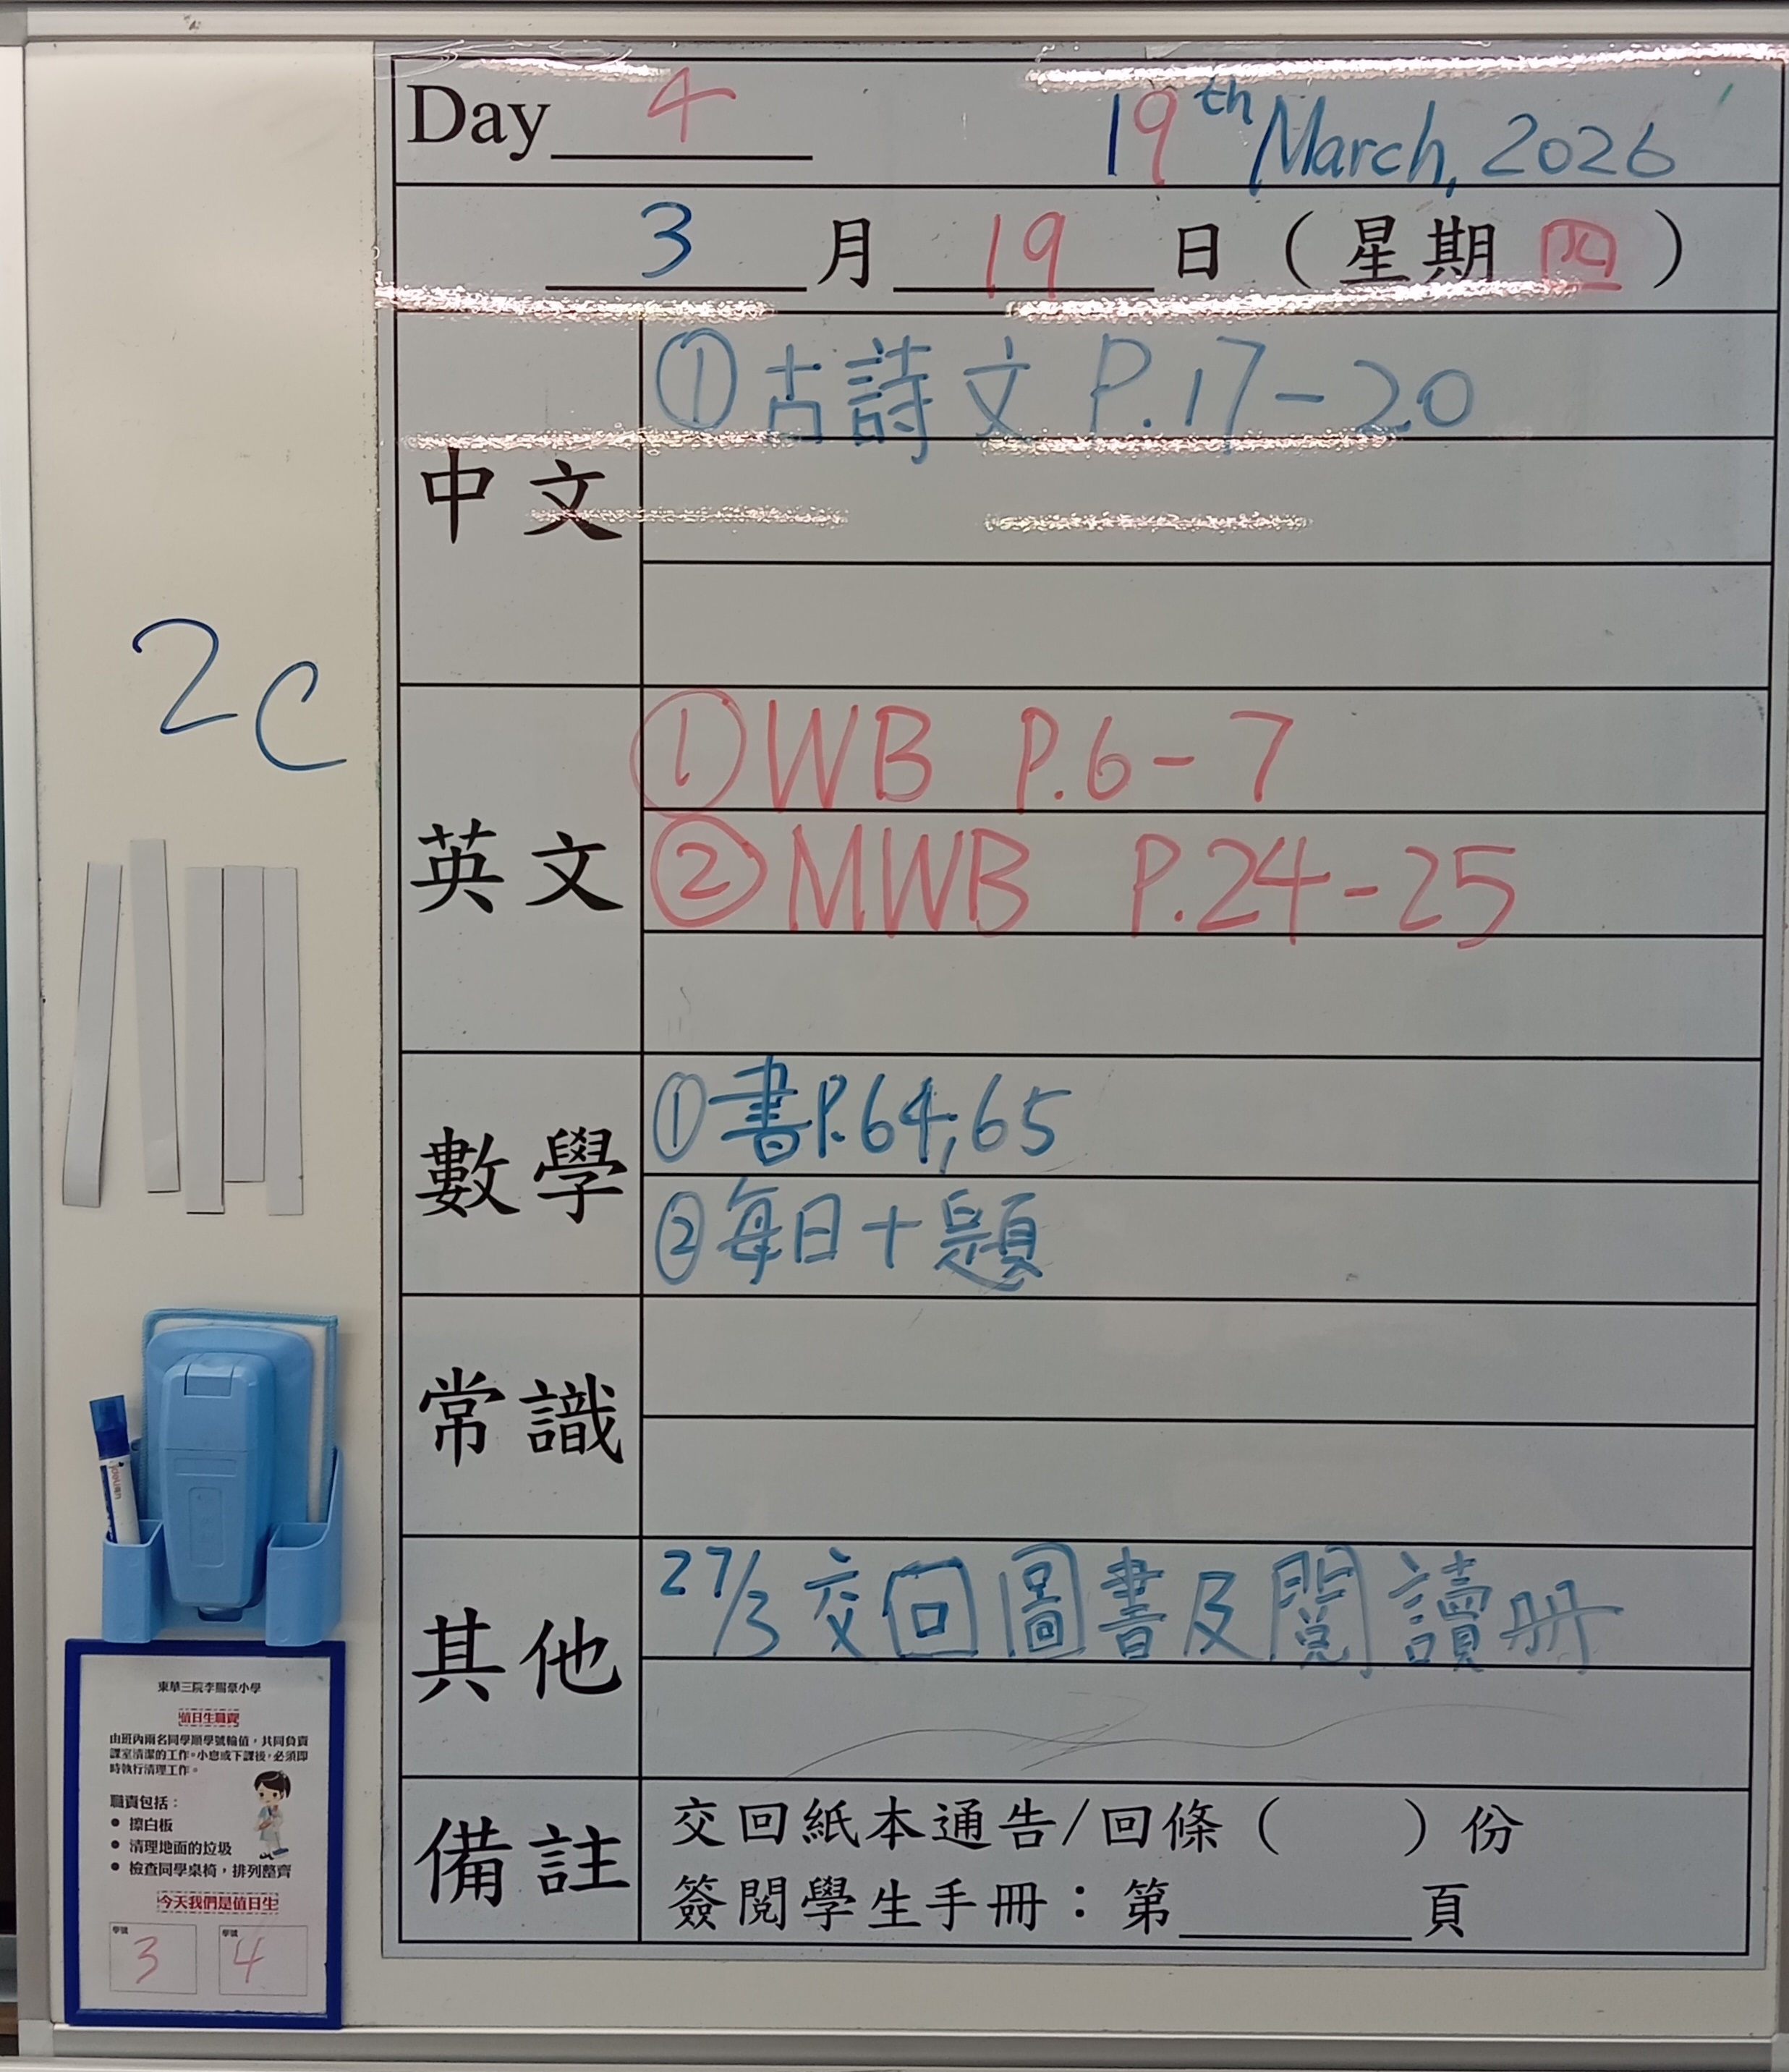 Day 4 19th March, 2026
3 月 19 日 ( 星期 四 )
中文
① 古詩文 P.17-20
2C
英文
① WB P.6-7
② MWB P.24-25
數學
① 書P.64,65
② 每日十題
常識
其他
27/3 交回圖書及閱讀冊
備註
交回紙本通告/回條 ( ) 份
簽閱學生手冊：第______頁
deli
東華三院李賜豪小學
值日生職責
由班內兩名同學順學號輪值，共同負責
課室清潔的工作。小息或下課後，必須即
時執行清理工作。
職責包括：
• 擦白板
• 清理地面的垃圾
• 檢查同學桌椅，排列整齊
今天我們是值日生
學號 3 學號 4